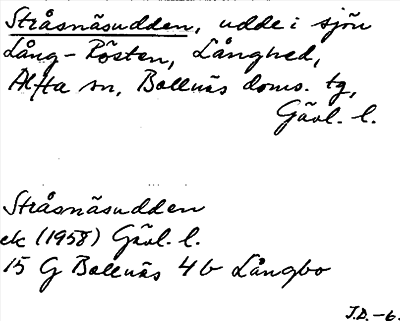 Stråsnäsudden, udde i sjön
Lång-Rösten, Långhed,
Alfta sn, Bollnäs doms. tg,
Gävl. l.
Stråsnäsudden
ek (1958) Gävl. l.
15 G Bollnäs 4 b Långbo
J.D.-6.